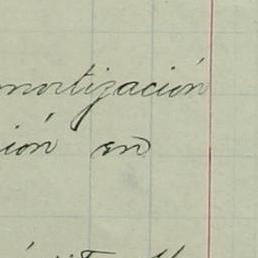 amortización
ión en